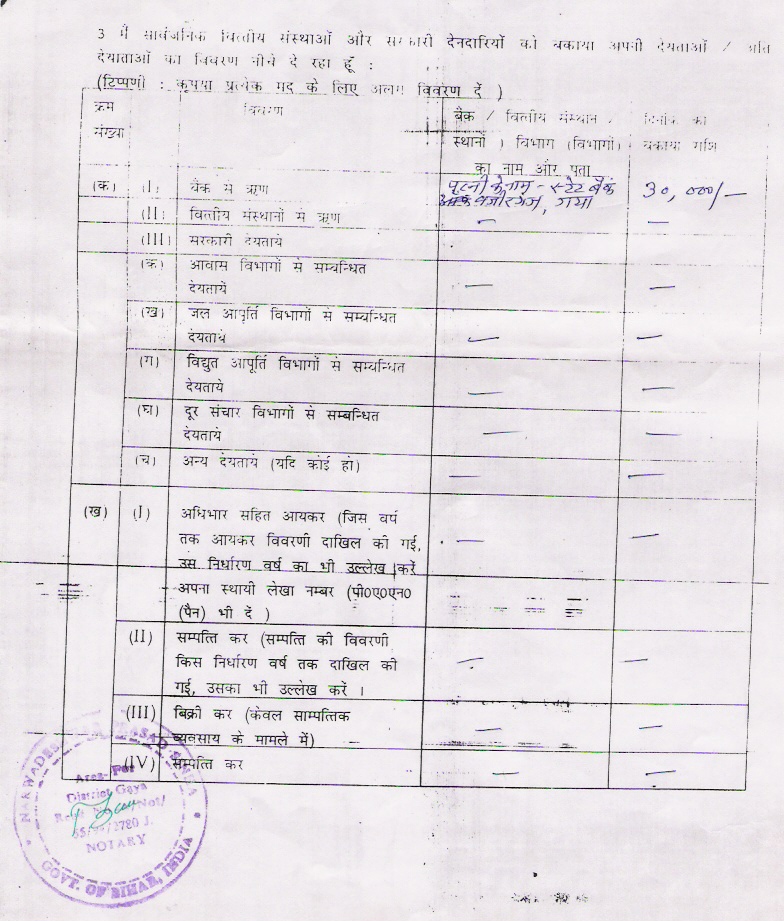 3 मैं सार्वजनिक वित्तीय संस्थाओं और सरकारी देनदारियों को बकाया अपनी देयताओं / अति
देयाताओं का विवरण नीचे दे रहा हूँ :
(टिप्पणी : कृपया प्रत्येक मद के लिए अलग विवरण दें )
क्रम
संख्या
विवरण
बैंक / वित्तीय संस्थान /
स्थानों ) विभाग (विभागों)
का नाम और पता
दिनांक का
बकाया राशि
(क) (I) बैंक से ऋण पत्नी के नाम - स्टेट बैंक
वजीरगंज, गया 30,000/-
(II) वित्तीय संस्थानों से ऋण — —
(III) सरकारी देयताये
(क) आवास विभागों से सम्बन्धित
देयताये — —
(ख) जल आपूर्ति विभागों से सम्बन्धित
देयताये — —
(ग) विद्युत आपूर्ति विभागों से सम्बन्धित
देयताये — —
(घ) दूर संचार विभागों से सम्बन्धित
देयताये — —
(च) अन्य देयताये (यदि कोई हो) — —
(ख) (I) अधिभार सहित आयकर (जिस वर्ष
तक आयकर विवरणी दाखिल की गई, — —
उस निर्धारण वर्ष का भी उल्लेख करें
अपना स्थायी लेखा नम्बर (पी०ए०एन०
(पैन) भी दें )
(II) सम्पत्ति कर (सम्पत्ति की विवरणी
किस निर्धारण वर्ष तक दाखिल की — —
गई, उसका भी उल्लेख करें ।
(III) बिक्री कर (केवल साम्पत्तिक
व्यवसाय के मामले में) — —
(IV) सम्पत्ति कर — —
Area-
District Gaya
3780 J.
NOTARY
GOVT. OF BIHAR, INDIA